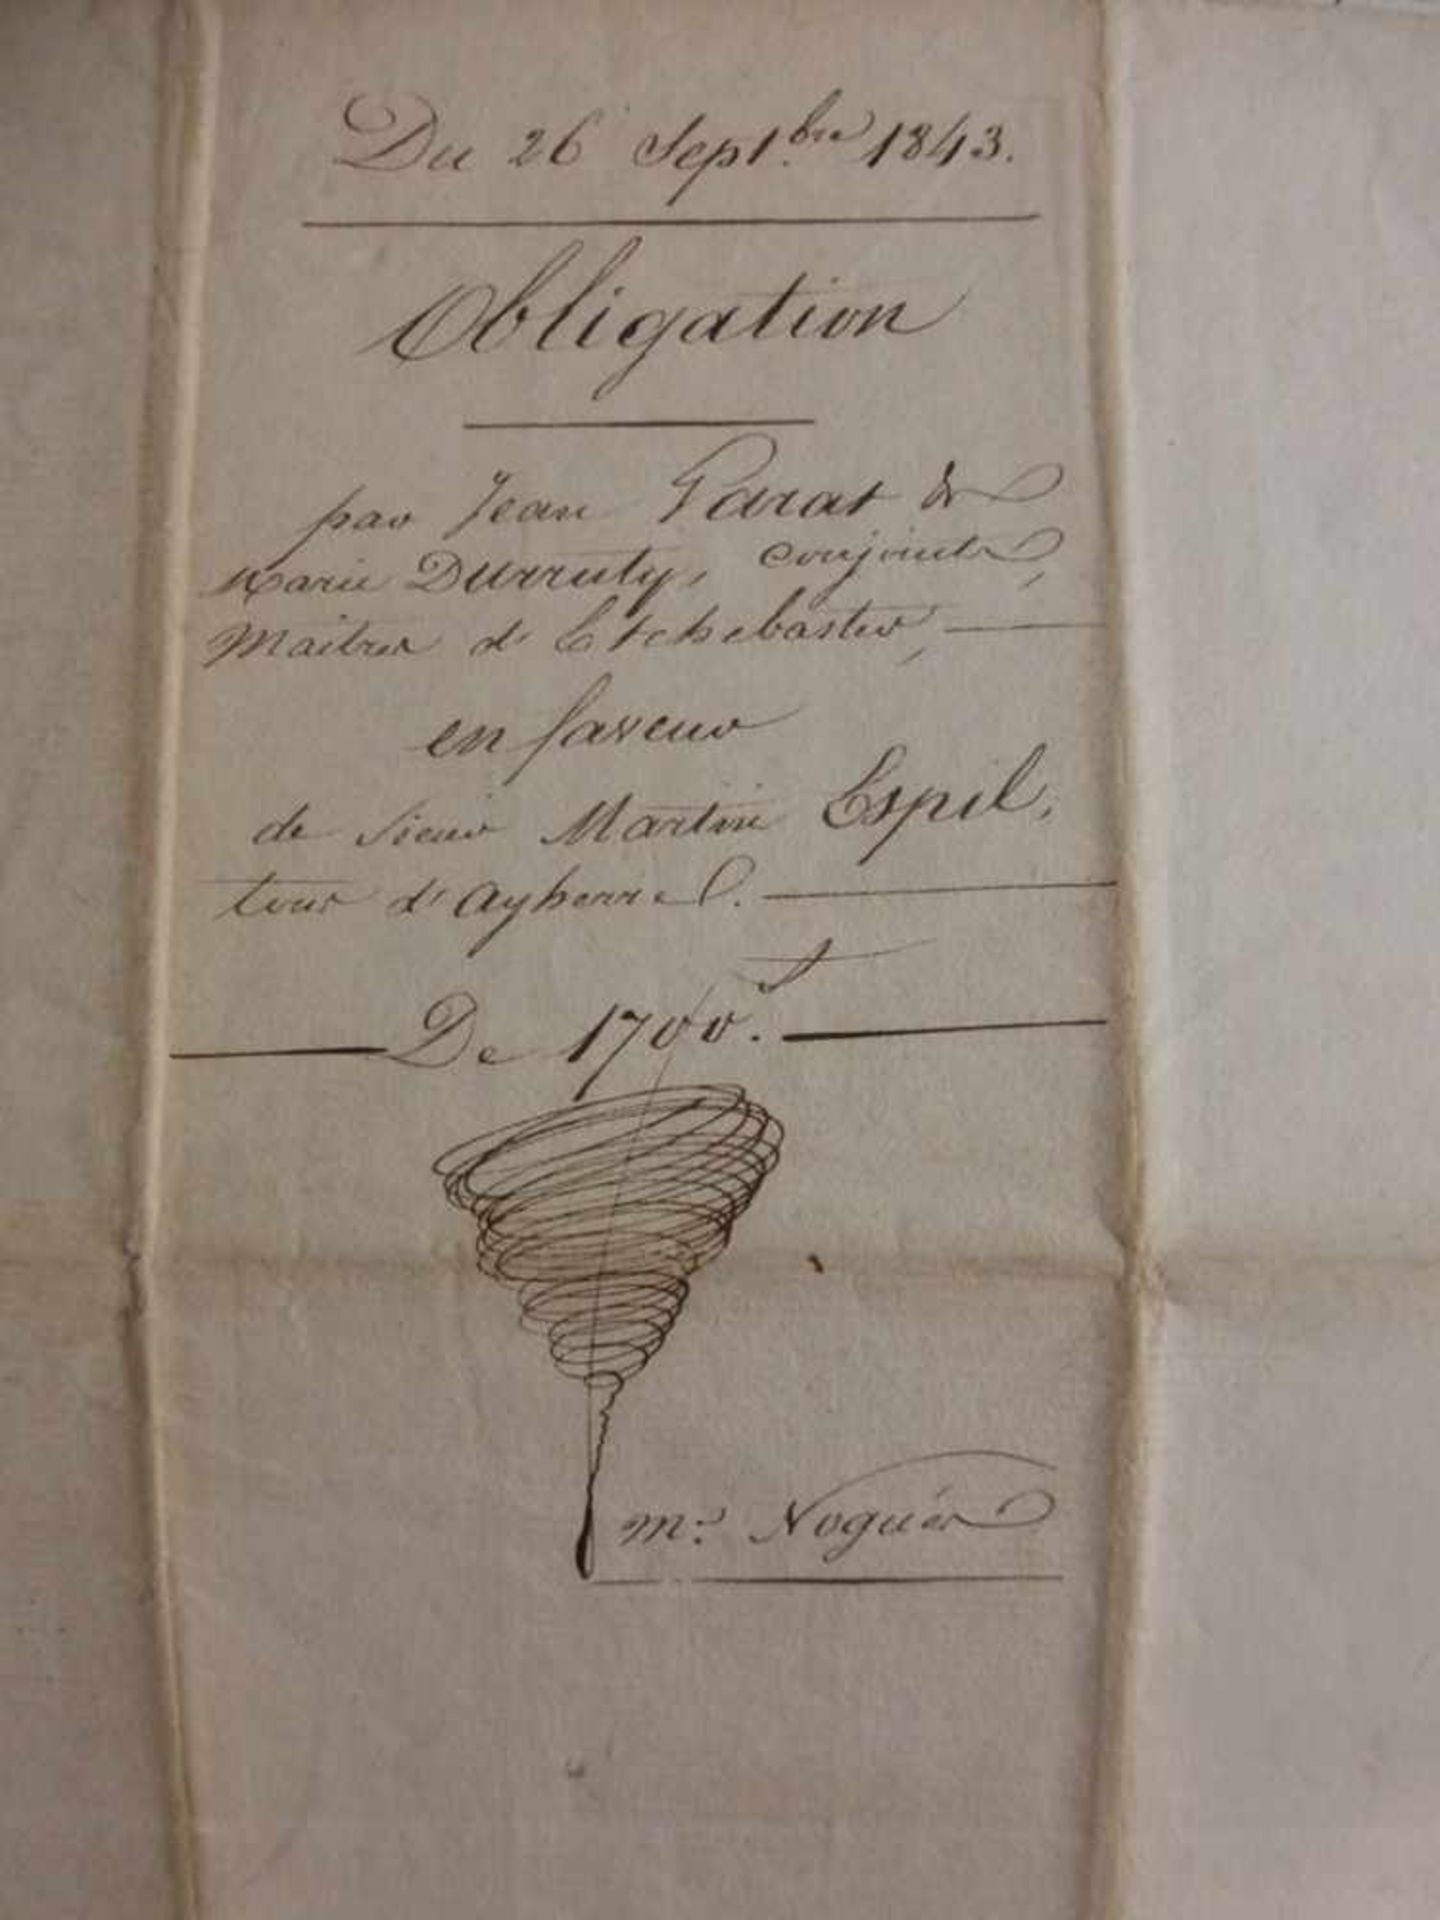 Du 26 Sept.bre 1843.
Obligation
par Jean Parat &
Marie Durruty, conjoints,
Maitres d'Etchebaster,
en faveur
de sieur Martin Espil,
tous d'Ayherre.
De 1700.f
Me. Nogués